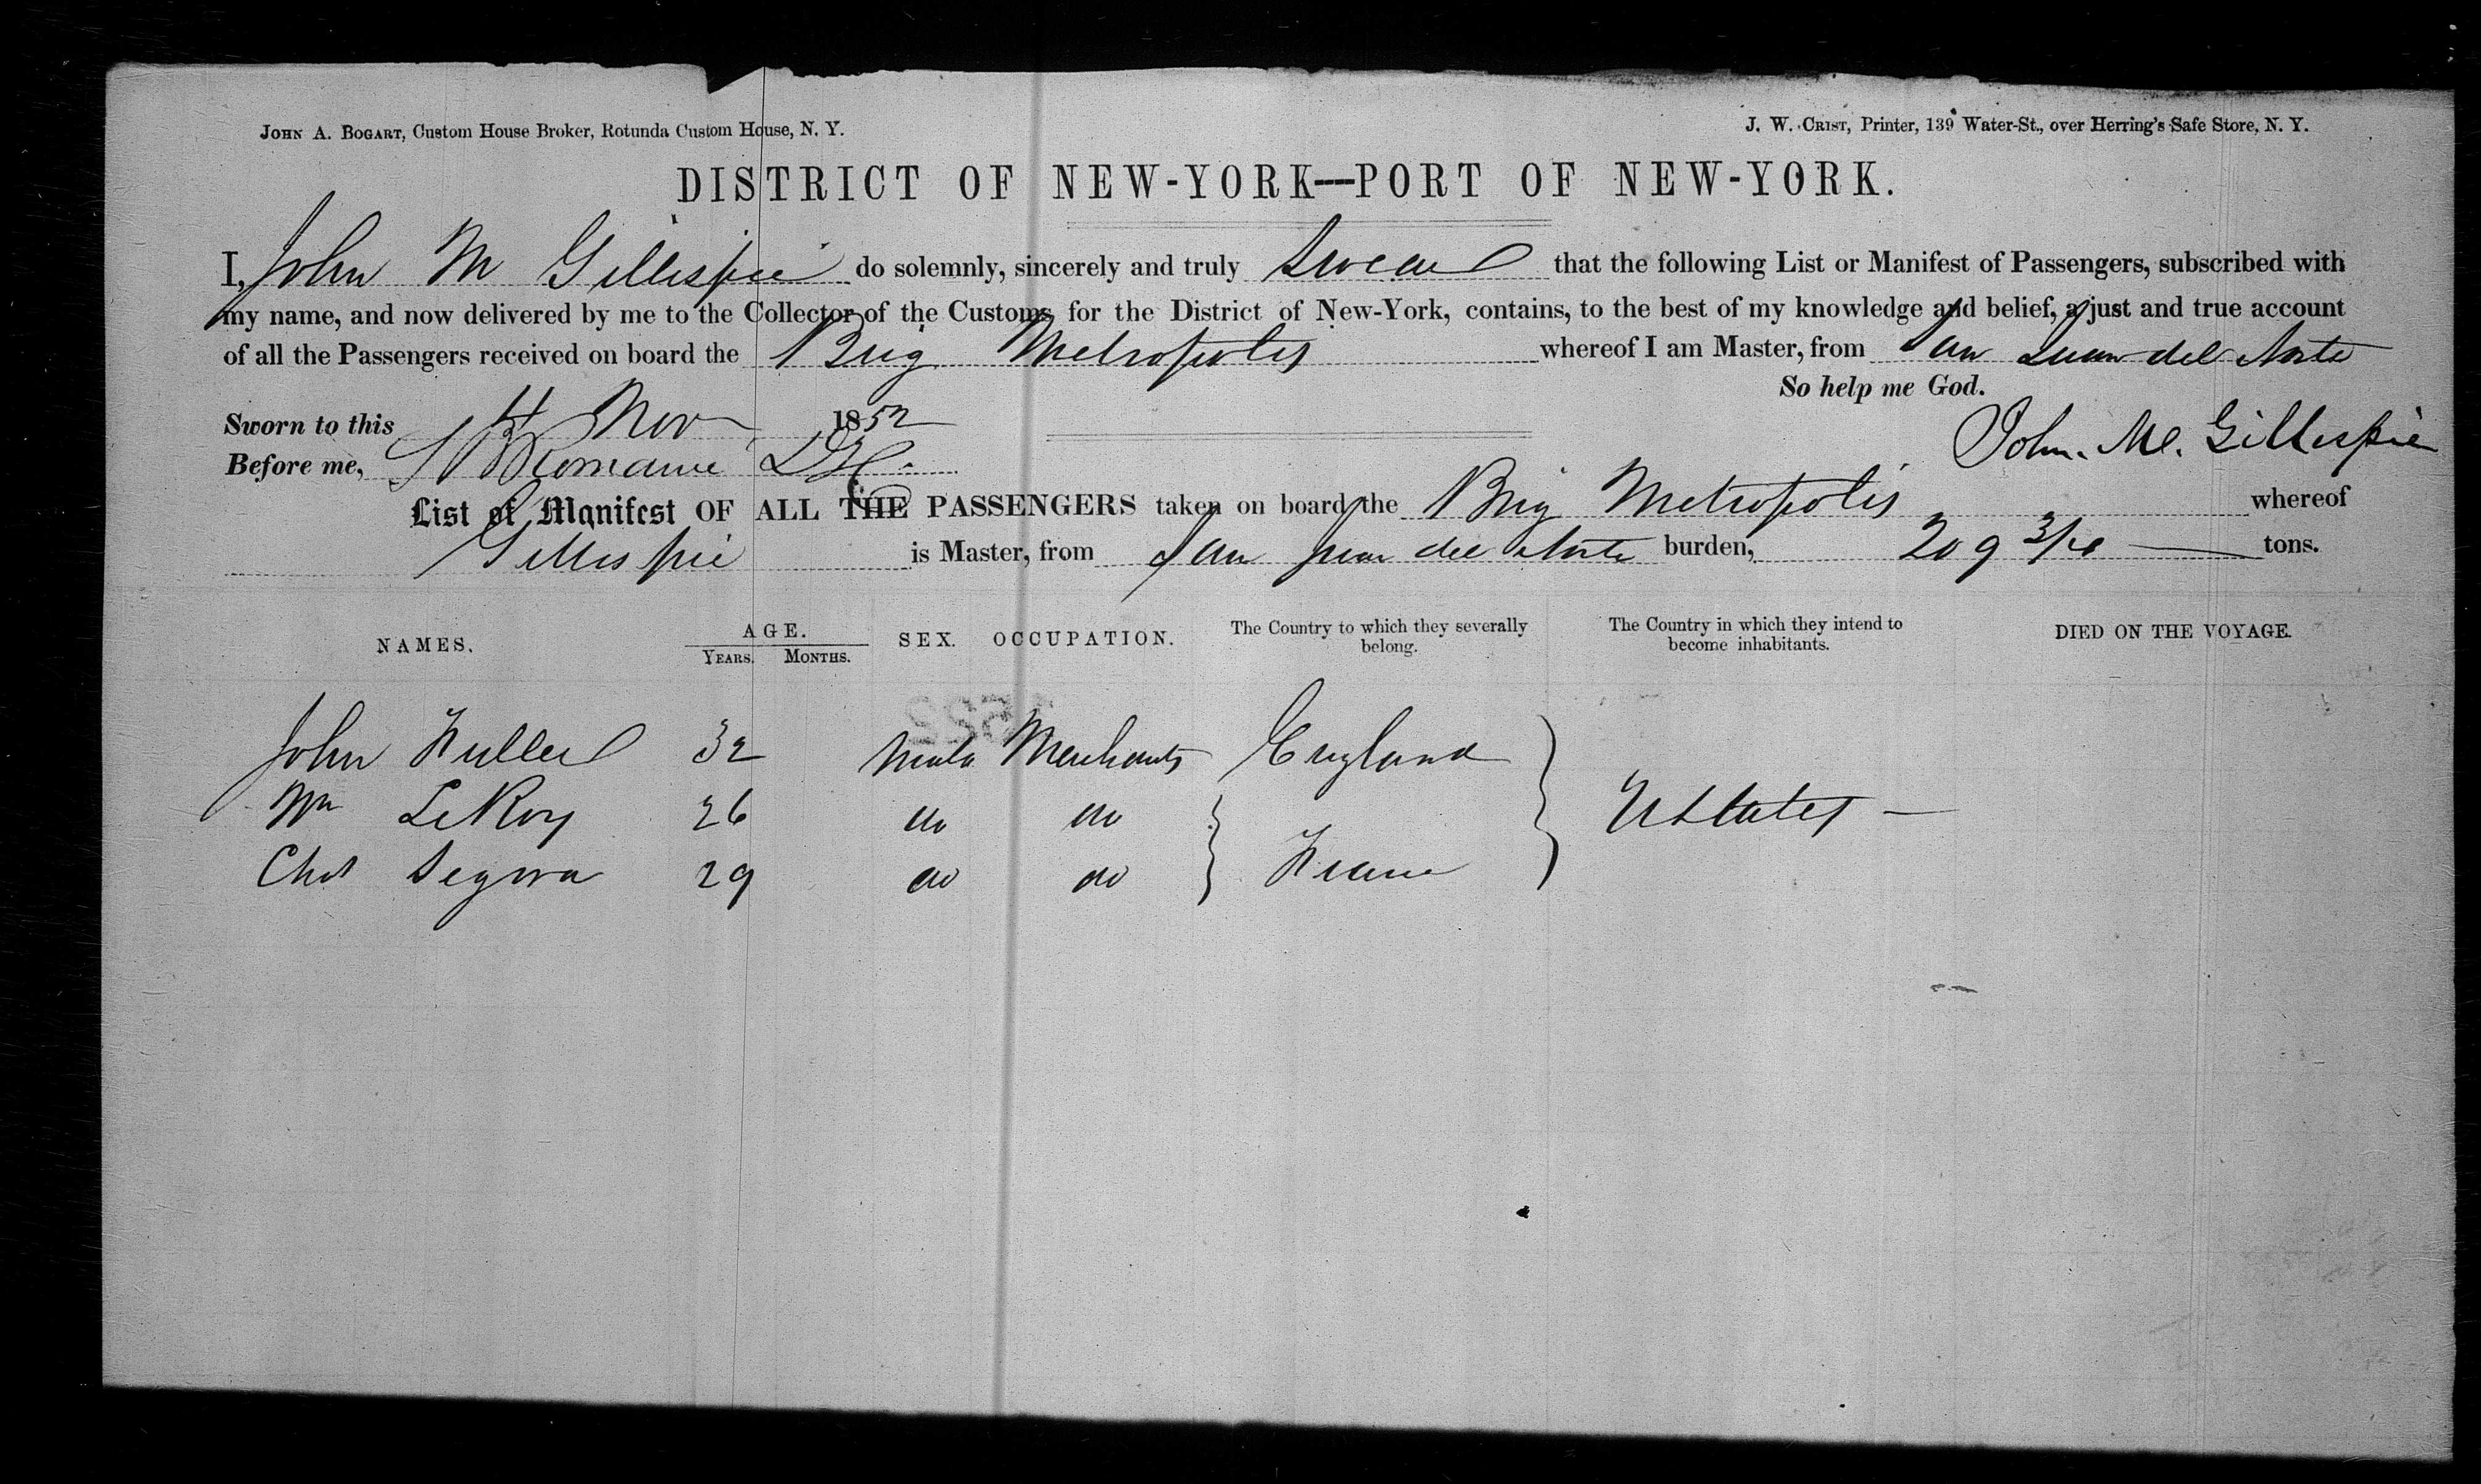 JOHN A. BOGART, Custom House Broker, Rotunda Custom House, N. Y.
J. W. CRIST, Printer, 139 Water-St., over Herring's Safe Store, N. Y.
DISTRICT OF NEW-YORK—PORT OF NEW-YORK.
I, John M Gillespie do solemnly, sincerely and truly swear that the following List or Manifest of Passengers, subscribed with
my name, and now delivered by me to the Collector of the Customs for the District of New-York, contains, to the best of my knowledge and belief, a just and true account
of all the Passengers received on board the Brig Metropolis whereof I am Master, from San Juan del Norte
So help me God.
Sworn to this Nov 1852
John. M. Gillespie
Before me,
List of Manifest OF ALL THE PASSENGERS taken on board the Brig Metropolis whereof
Gillespie is Master, from San Juan del Norte burden, 209 tons.
NAMES. AGE. YEARS. MONTHS. SEX. OCCUPATION. The Country to which they severally belong. The Country in which they intend to become inhabitants. DIED ON THE VOYAGE.
John Fuller 32 Male Merchants England
Wm LeRoy 26 do do
UStates —
Chas Segova 29 do do France